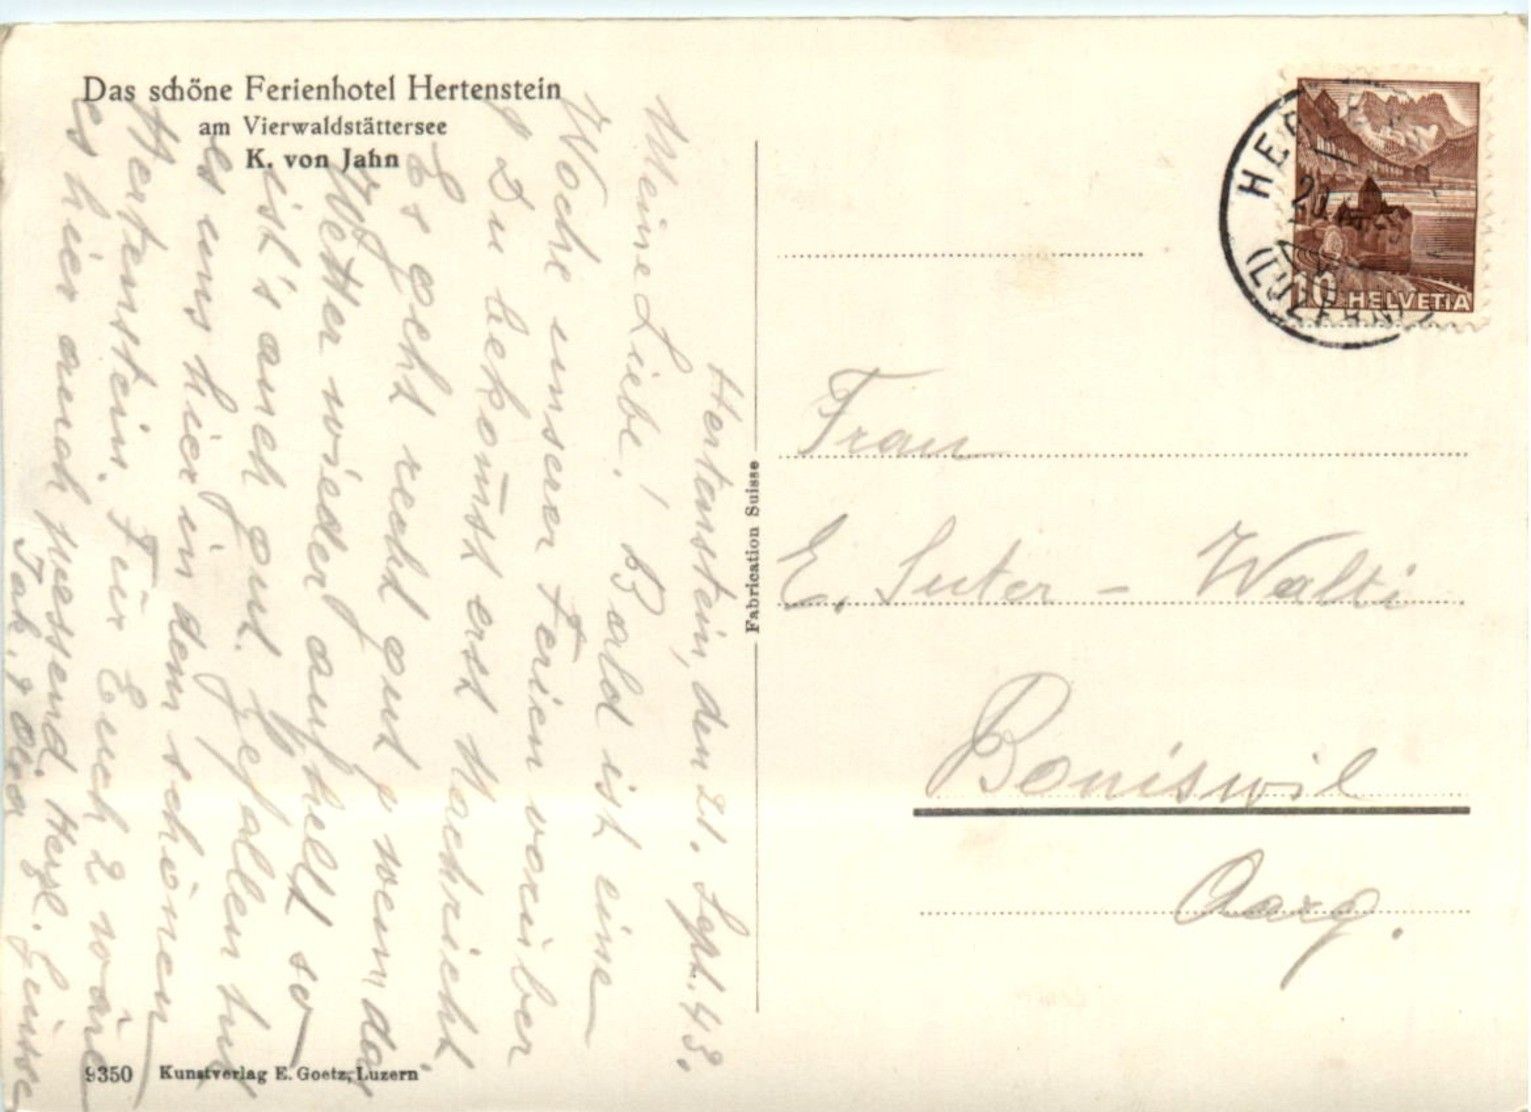 Das schöne Ferienhotel Hertenstein
am Vierwaldstättersee
K. von Jahn
Hertenstein, den 21. Sept. 43.
Meine Liebe! Bald ist eine
Woche unserer Ferien vorüber
& Du bekom̄st erst Nachricht
Es geht recht gut & wenn das
Wetter wieder aufhellt so
ist's auch gut. Gefallen tut
es uns hier in dem schönen
Hertenstein. Für Euch 2 wäre
es hier auch passend. Herzl. Grüsse
Jak. &
Fabrication Suisse
9350 Kunstverlag E. Goetz, Luzern
HELVETIA
10
(LUZERN)
20.
Frau
E. Suter - Wälti
Boniswil
Aarg.